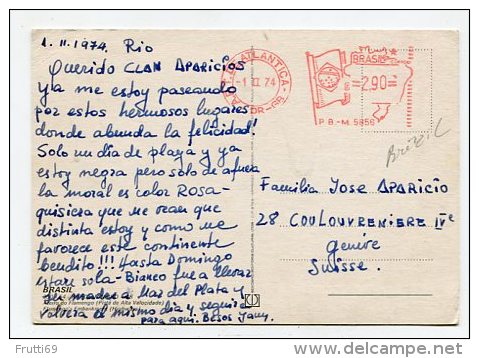 1.II.1974, Rio
Querido CLAN APARICIOS
ya me estoy paseando
por estos hermosos lugares
donde abunda la felicidad!
Solo un dia de playa y ya
estoy negra pero solo de afuera
la moral es color ROSA-
quisiera que me vean que
distinta estoy y como me
favorece este continente
bendito!!! Hasta Domingo
estare sola - Bianco fue a llevar
su madre a Mar del Plata y
volvera el mismo dia y seguir
para aqui. Besos
BRASIL
Flamengo (Pista de Alta Velocidade)
ATLANTICA
-1 II 74
BRASIL
2.90
P B.-M. 5856
Familia Jose APARICIO
28 COULOUVRENIERE IVe
Genève
Suisse.
Frutti69
delcampe.net